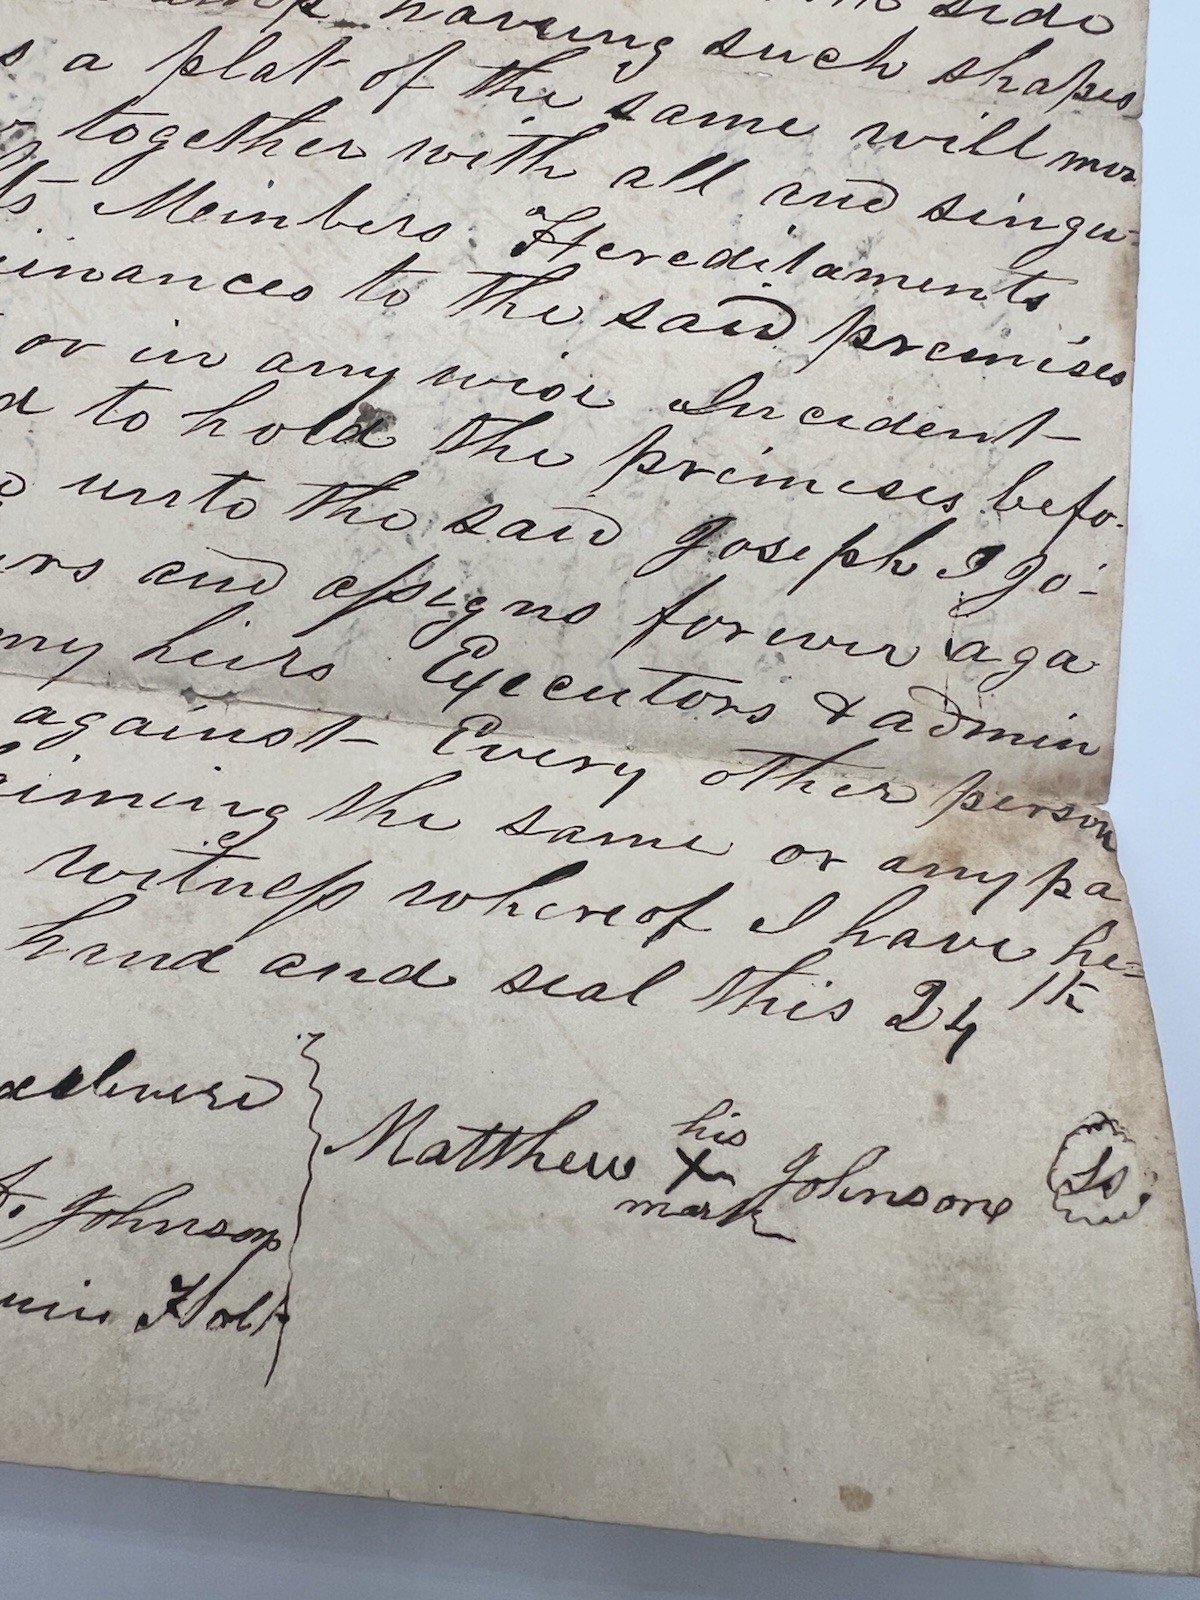 having such shapes
s a plat of the same will mor
together with all and singu-
ts Meinbers Hereditaments
inances to the said premises
or in any wise Incident
d to hold the primises befo-
unto the said Joseph J Jo-
rs and assigns forever aga
my heirs Executors & admin
against Every other person
iming the same or any pa
witness whereof I have he-
hand and seal this 24th
delivered
his
Matthew X Johnson LS
mark
Johnson
Holt